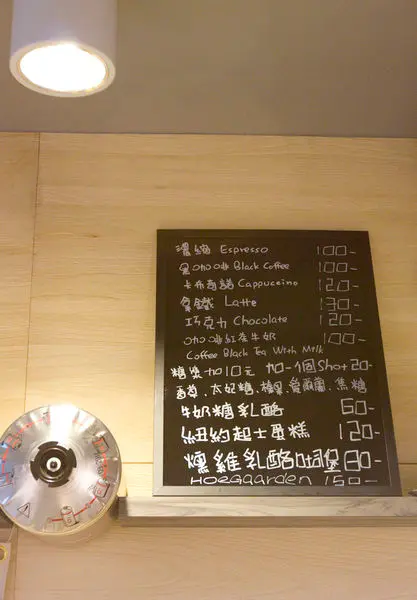 濃縮 Espresso 100-
黑咖啡 Black Coffee 100-
卡布奇諾 Cappuccino 120-
拿鐵 Latte 130-
巧克力 Chocolate 120-
咖啡紅茶牛奶 100-
Coffee Black Tea With Milk
糖漿加10元 加一個Shot 20-
香草、太妃糖、榛果、愛爾蘭、焦糖
牛奶糖乳酪 60-
紐約起士蛋糕 120-
燻雞乳酪吐司堡 80-
HoeGaarden 150-